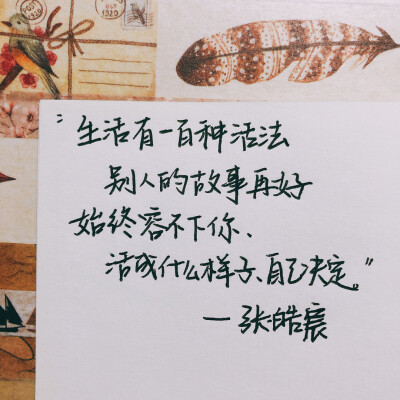 “生活有一百种活法
别人的故事再好
始终容不下你、
活成什么样子、自己决定。”
—张皓宸